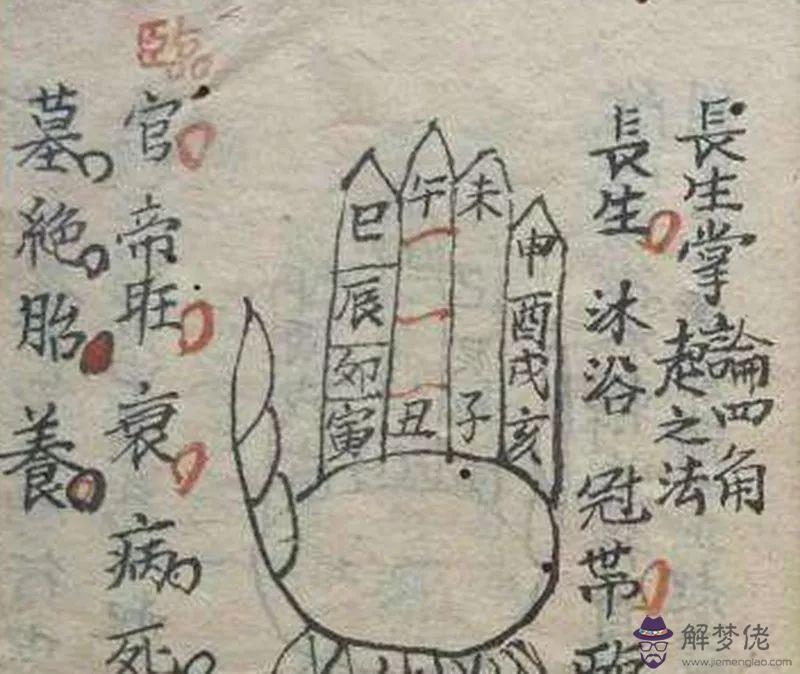 長生掌
論四角
起之法
長生 沐浴 冠帶
臨
官 帝旺 衰 病 死
墓 絶 胎 養
巳 午 未 申
辰 酉
卯 戌
寅 丑 子 亥
解梦佬
www.jiemenglao.com